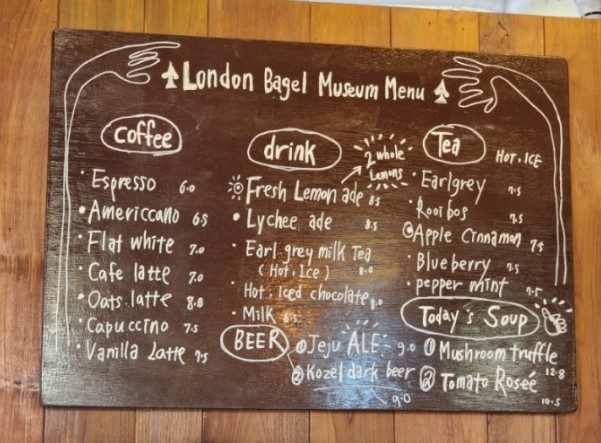 ♠London Bagel Museum Menu♠
coffee
Espresso 6.0
Americcano 6.5
Flat white 7.0
Cafe latte 7.0
Oats latte 8.0
Capuccino 7.5
Vanilla Latte 7.5
drink
2 whole
Lemons
Fresh Lemon ade 8.5
Lychee ade 8.5
Earl grey milk Tea
(Hot, Ice) 8.0
Hot, iced chocolate 8.0
Milk 6.5
BEER
① Jeju ALE- 9.0
② Kozel dark beer
9.0
Tea
HOT, ICE
Earlgrey 7.5
Rooibos 7.5
Apple Cinnamon 7.5
Blueberry 7.5
pepper mint 7.5
Today's Soup
① Mushroom truffle
12.8
② Tomato Roseé
10.5